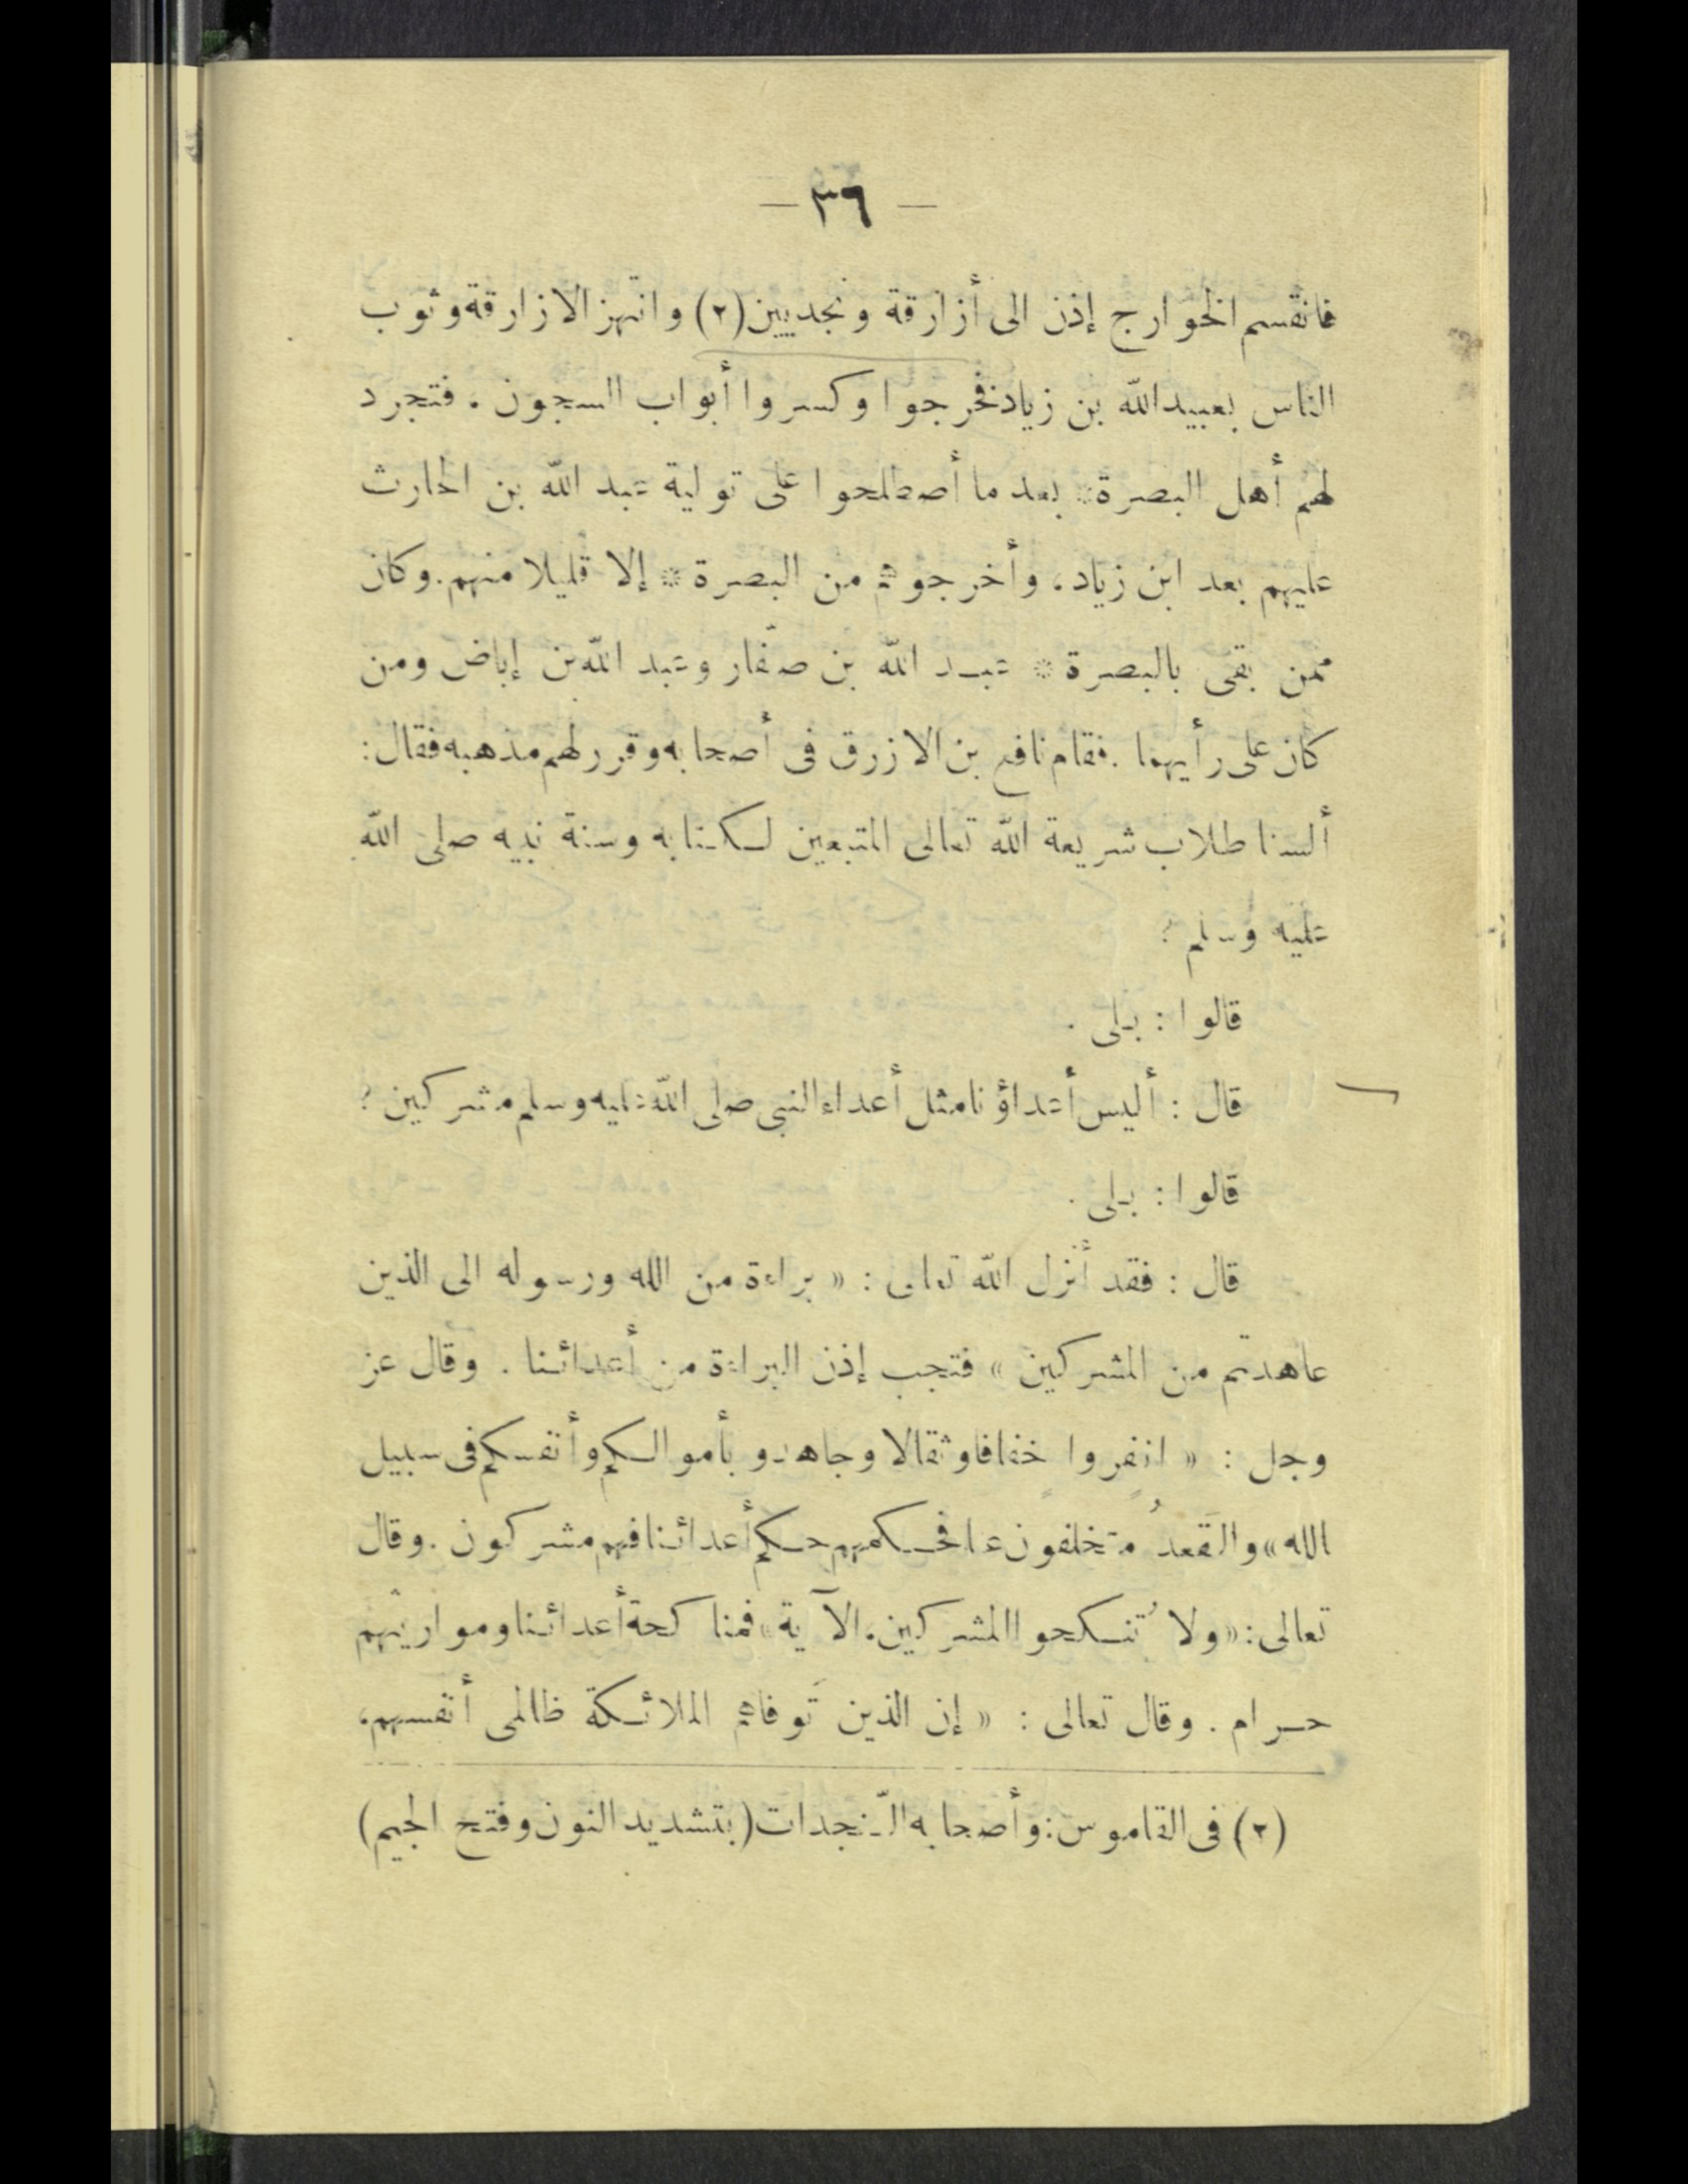 — ٣٦ —
فانقسم الخوارج إذن الى أزارقة ونجديين (٢) وانتهز الازارقة وثوب
الناس بعبيد الله بن زياد فخرجوا وكسروا أبواب السجون . فتجرد
لهم أهل البصرة * بعد ما أصطلحوا على تولية عبد الله بن الحارث
عليهم بعد ابن زياد ، وأخرجوهم من البصرة * إلا قليلا منهم . وكان
ممن بقى بالبصرة * عبد الله بن صفّار وعبد الله بن إباض ومن
كان على رأيهما . فقام نافع بن الازرق فى أصحابه وقرر لهم مذهبه فقال :
ألسنا طلاب شريعة الله تعالى المتبعين لكتابه وسنة نبيه صلى الله
عليه وسلم ؟
قالوا : بلى .
قال : أليس أعداؤنا مثل أعداء النبى صلى الله عليه وسلم مشركين ؟
قالوا : بلى .
قال : فقد أنزل الله تعالى : « براءة من الله ورسوله الى الذين
عاهدتم من المشركين » فتجب إذن البراءة من أعدائنا . وقال عز
وجل : « انفروا خفافا وثقالا وجاهدو بأموالكم وأنفسكم فى سبيل
الله » والقَعدُ متخلفون عنا فحكمهم حكم أعدائنا فهم مشركون . وقال
تعالى : « ولا تُنكحوا المشركين ، الآية » فمناكحة أعدائنا ومواريثهم
حرام . وقال تعالى : « إن الذين تَوفاهم الملائكة ظالمى أنفسهم ،
(٢) فى القاموس : وأصحابه النّجدات (بتشديد النون وفتح الجيم)